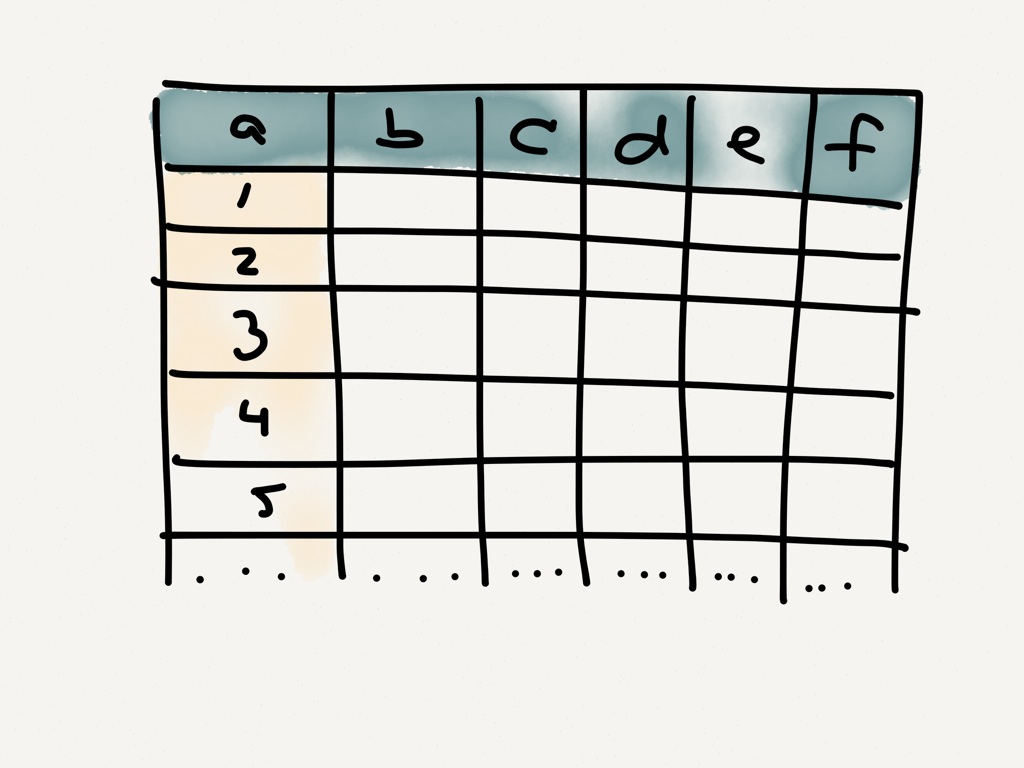 a b c d e f
1
2
3
4
5
... ... ... ... ... ...